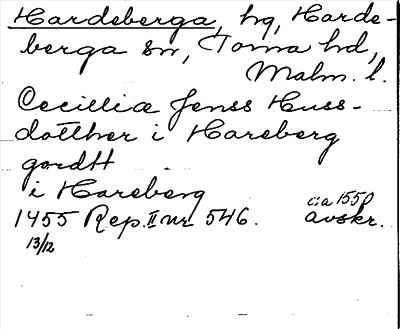 Hardeberga, hg, Harde-
berga sn, Torna hd,
Malm. l.
Cecillia Jenss Huss-
dotther i Hareberg
gardH
i Hareberg
1455 Rep. II nr 546. c:a 1550
13/12 avskr.